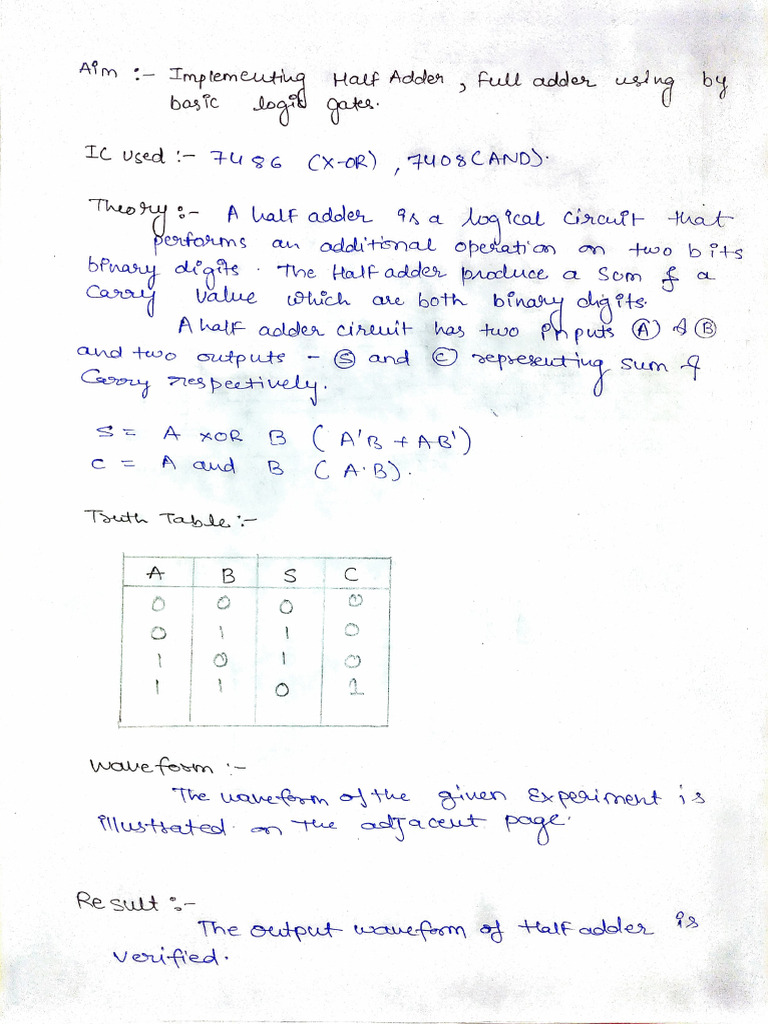 Aim :- Implementing Half Adder, full adder using by
basic logic gates.
IC used :- 7486 (X-OR), 7408(AND).
Theory :- A half adder is a logical circuit that
performs an additional operation on two bits
binary digits. The Half adder produce a sum & a
Carry value which are both binary digits.
A half adder circuit has two inputs Ⓐ & Ⓑ
and two outputs - Ⓢ and Ⓒ representing sum &
Carry respectively.
S = A XOR B (A'B + AB')
C = A and B (A·B).
Truth Table :-
A B S C
0 0 0 0
0 1 1 0
1 0 1 0
1 1 0 1
Waveform :-
The waveform of the given Experiment is
illustrated on the adjacent page.
Result :-
The output waveform of Half adder is
verified.